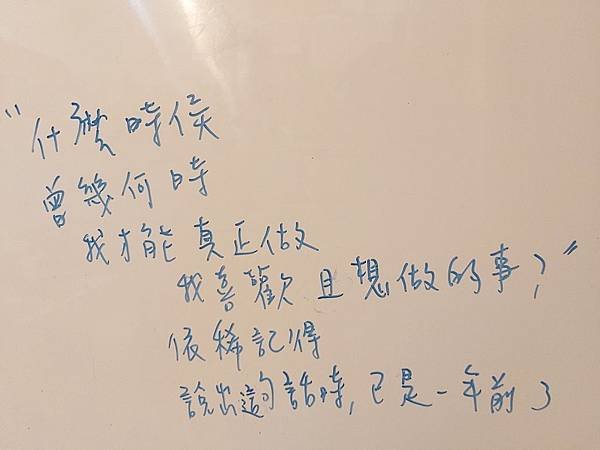 "什麼時候
曾幾何時
我才能真正做
我喜歡且想做的事？"
依稀記得
說出這句話時，已是一年前了